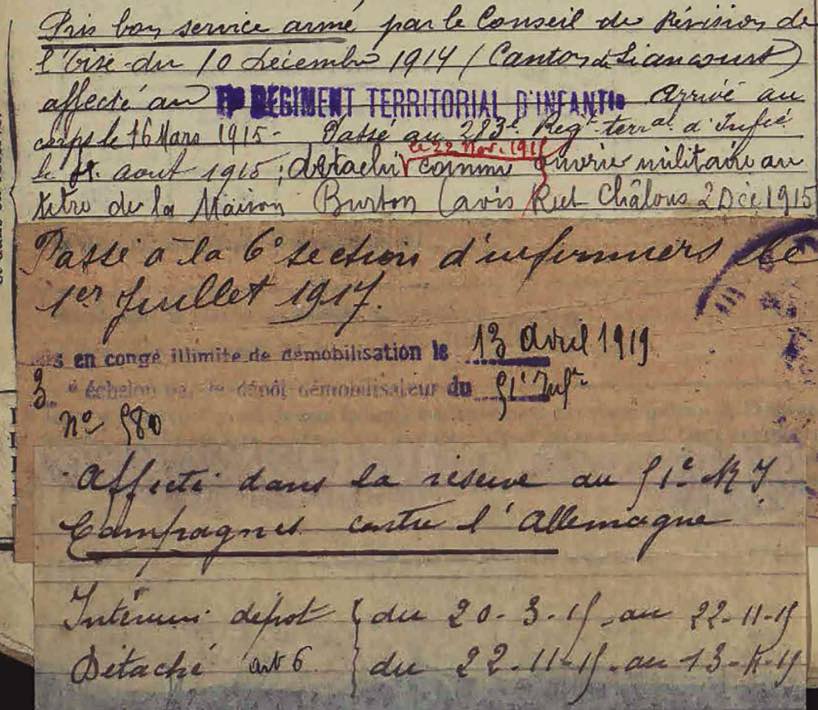 Pris bon service armé par le Conseil de Révision de
l'Oise du 10 Décembre 1914 (Canton de Liancourt)
affecté au REGIMENT TERRITORIAL D'INFANTIE Arrivé au
corps le 16 Mars 1915 - Passé au 283e Regt terral d'Infie
le 22 Nov. 1915
le août 1915; détaché comme ouvrier militaire au
titre de la Maison Burton (avis Rect Châlons 2 Déc 1915
Passé à la 6e section d'infirmiers le
1er Juillet 1917.
s en congé illimité de démobilisation le 13 avril 1919
3 e échelon dépôt démobilisateur du 51e Infie
No 580
Affecté dans la réserve au 51e R I
Campagnes contre l'Allemagne
Intérieur dépôt { du 20-3-15 au 22-11-15
Détaché art 6 { du 22-11-15 au 13-4-19